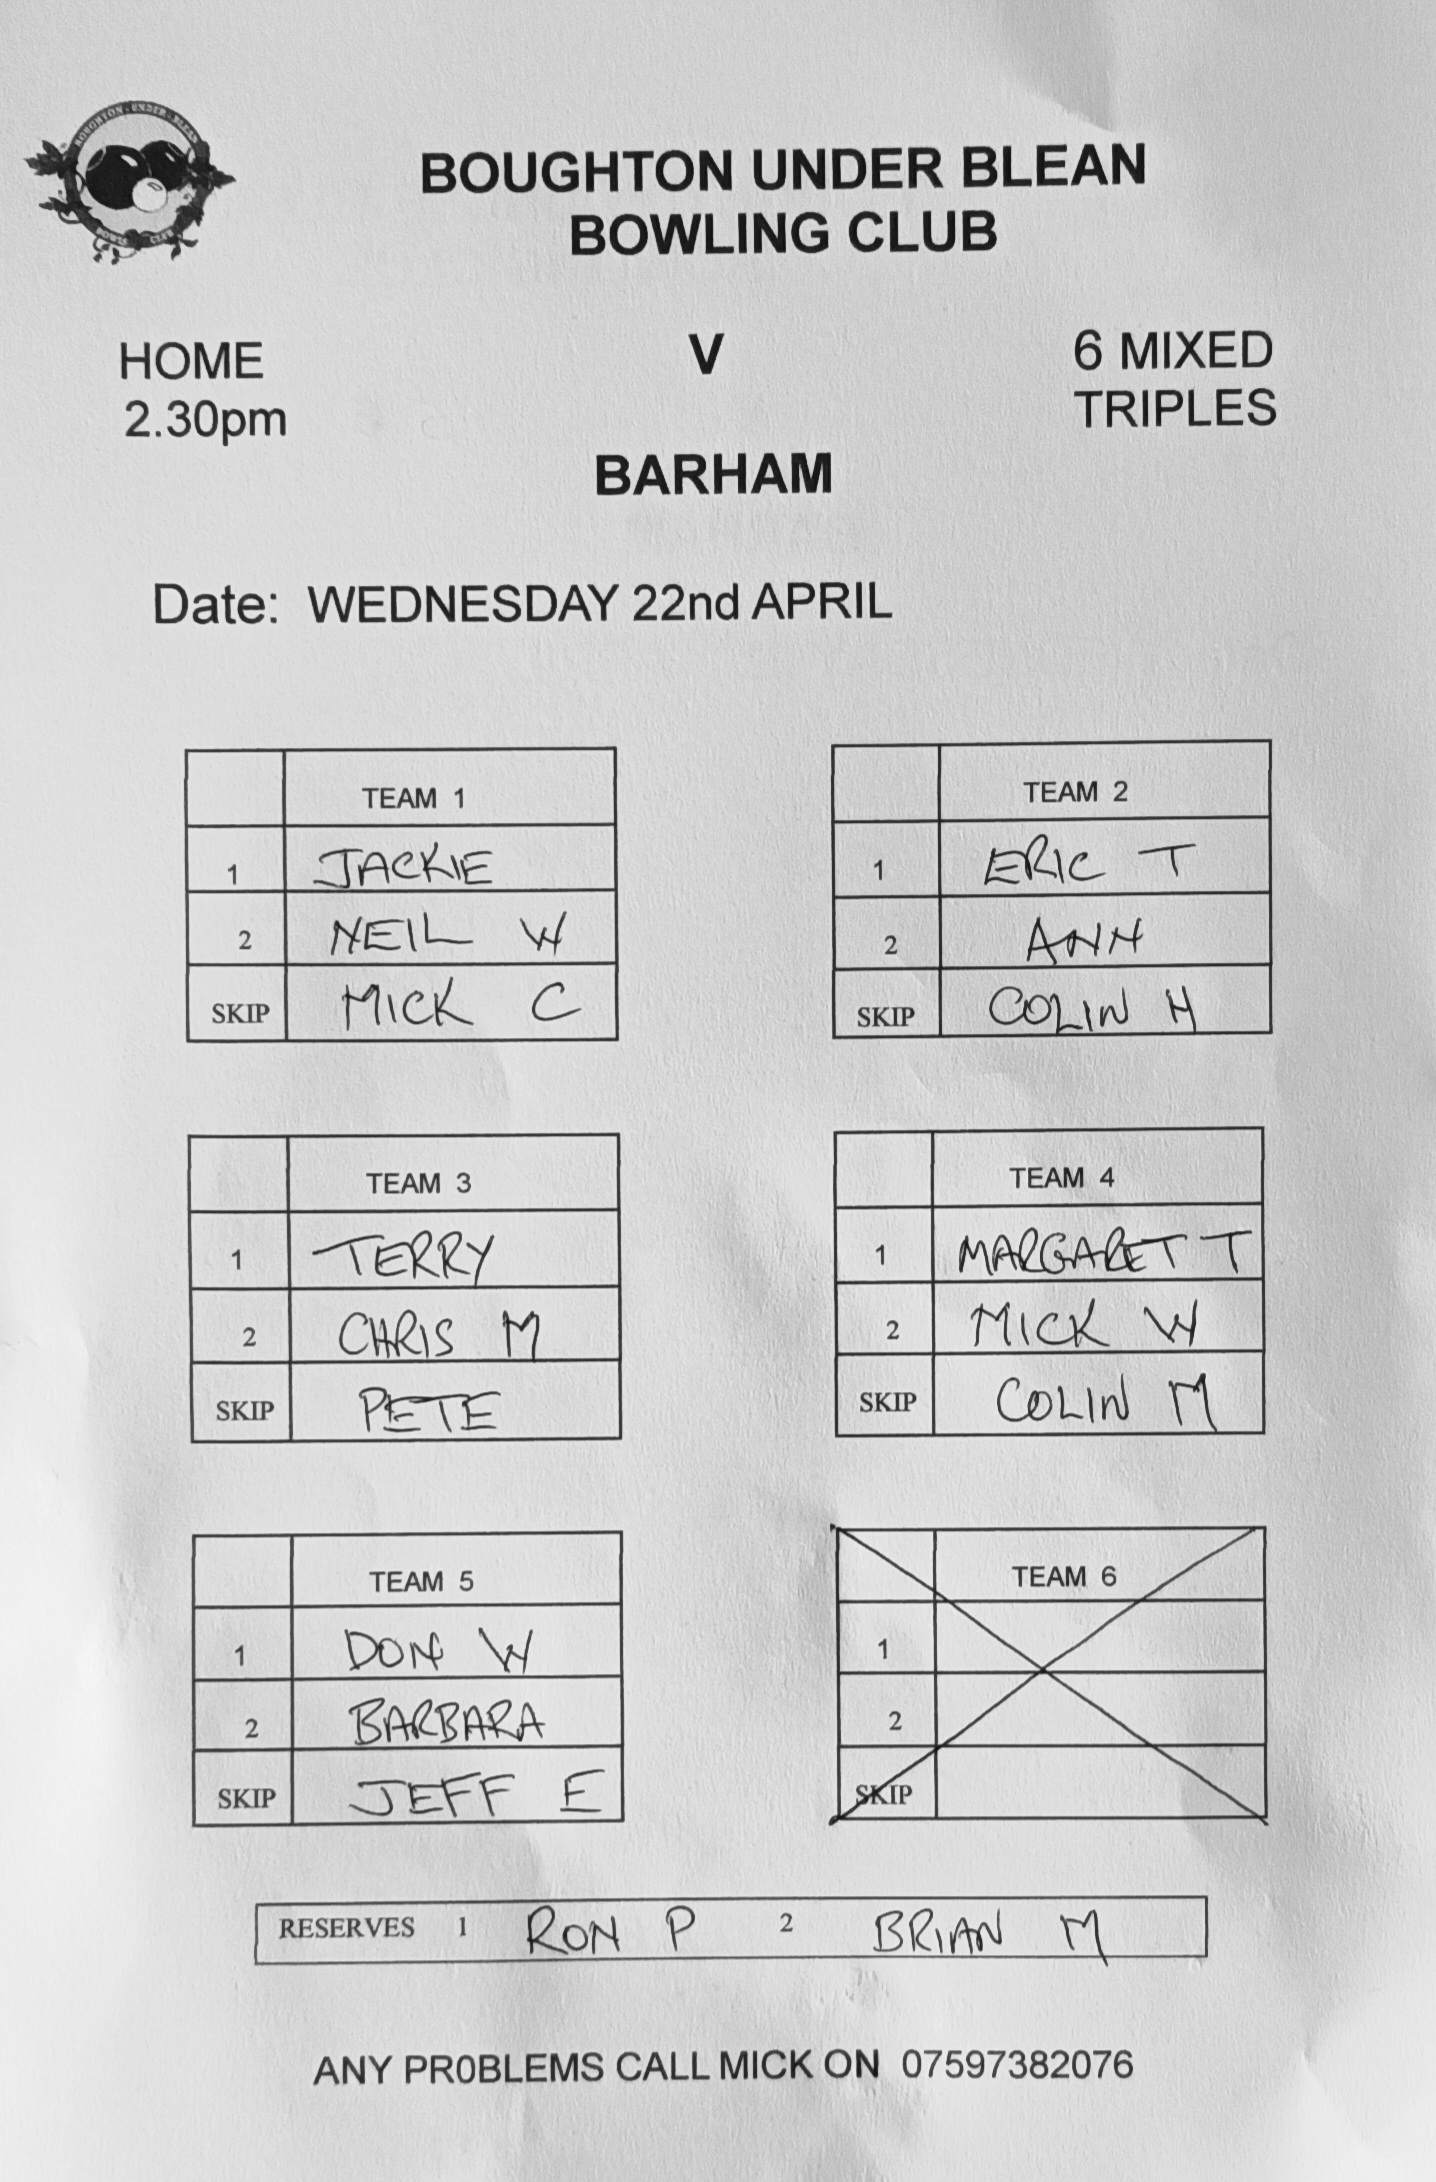 BOUGHTON UNDER BLEAN
BOWLS CLUB
BOUGHTON UNDER BLEAN
BOWLING CLUB
HOME
2.30pm
V
6 MIXED
TRIPLES
BARHAM
Date: WEDNESDAY 22nd APRIL
TEAM 1
1 JACKIE
2 NEIL W
SKIP MICK C
TEAM 2
1 ERIC T
2 ANN
SKIP COLIN H
TEAM 3
1 TERRY
2 CHRIS M
SKIP PETE
TEAM 4
1 MARGARET T
2 MICK W
SKIP COLIN M
TEAM 5
1 DON W
2 BARBARA
SKIP JEFF E
TEAM 6
1
2
SKIP
RESERVES 1 RON P 2 BRIAN M
ANY PR0BLEMS CALL MICK ON 07597382076